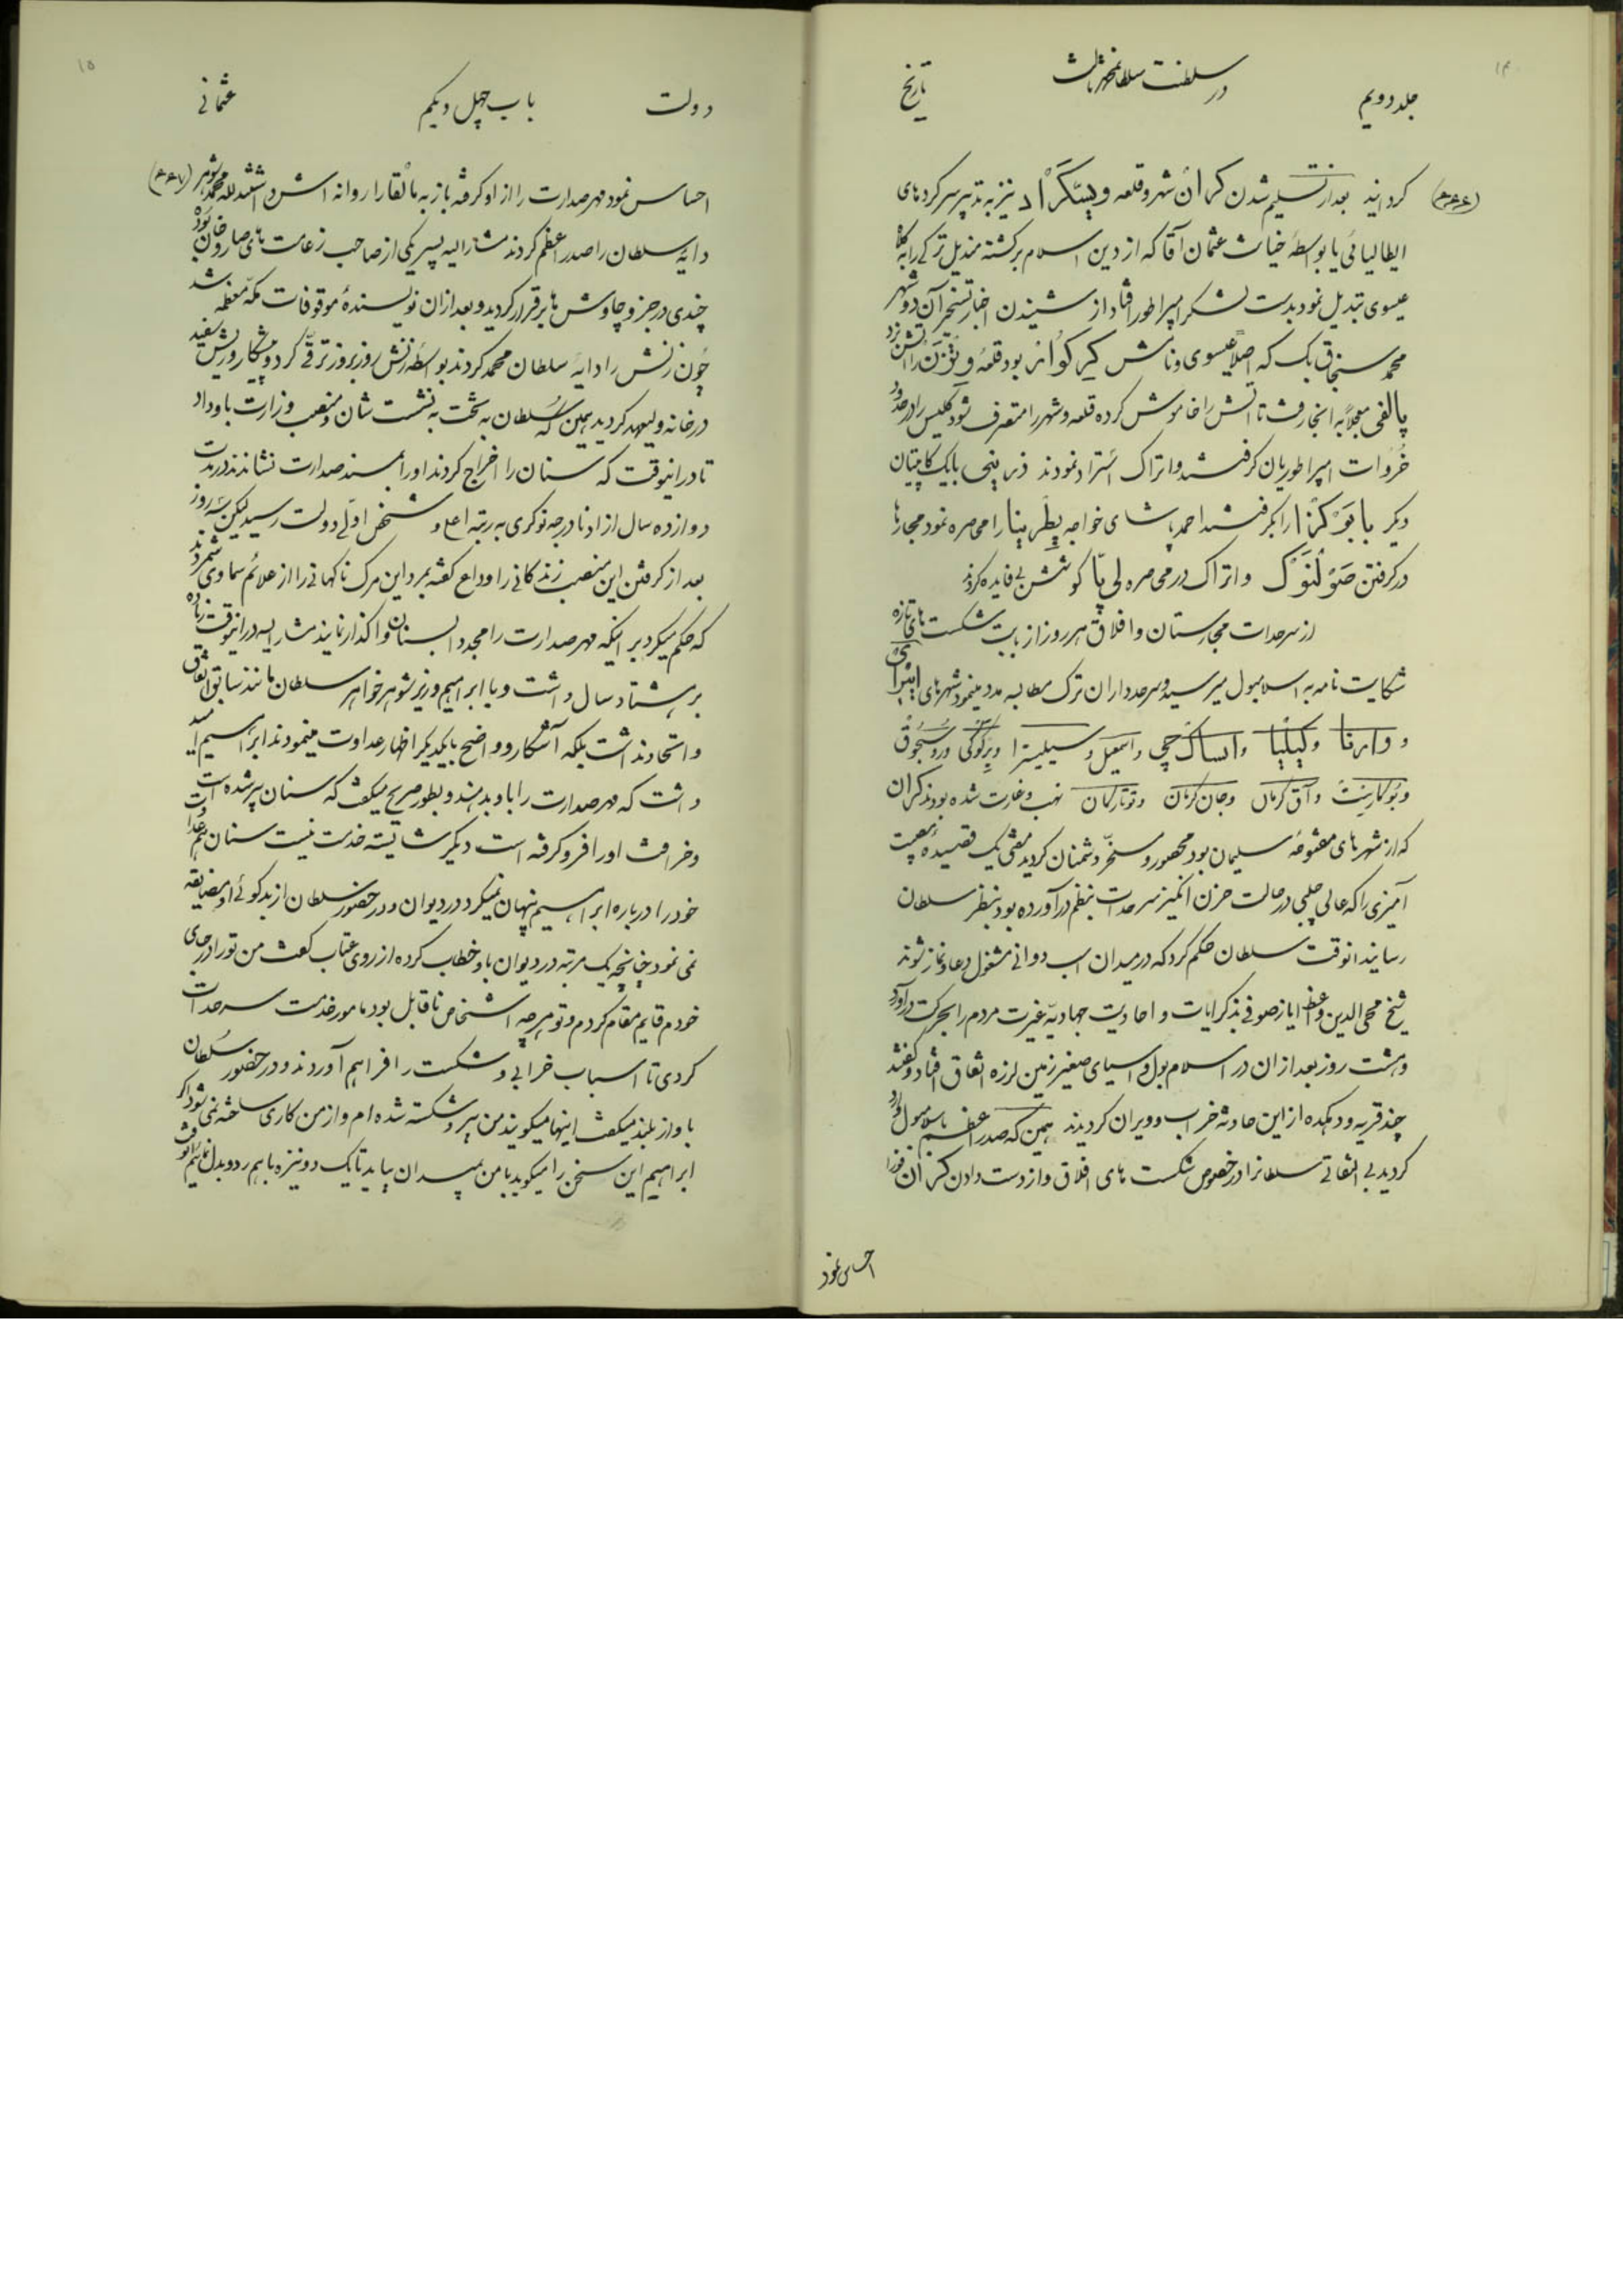 ۱۴
جلد دویم
در سلطنت سلطان محمد ثالث
تاریخ
(۴۶۶)
کردانید بعد از تسلیم شدن کران شهر و قلعه ویسگراد نیز به تدبیر سرکرده‌های
ایطالیائی یا بواسطهٔ خیانت عثمان آقا که از دین اسلام برکشته مندیل ترکی را به کلاه
عیسوی تبدیل نمود بدست لشکر امپراطور افتاد از شنیدن اخبار تسخیر آن دو شهر
محمد سنجاق بک که اصلا عیسوی و نامش بود قلعه را آتش زد
پالفی معجلا به انجا رفت تا اتش را خاموش کرده قلعه و شهر را متصرف شود کلیس را در حدود
خروات امپراطوریان کرفتند و اتراک استرداد نمودند بایک کاپیتان
دیکر را بکرفتند احمد پاشای خواجه پطرینا را محاصره نمود مجارها
در کرفتن صولنوک و اتراک در محاصره لی پا کوشش بی فایده کردند
از سرحدات مجارستان و افلاق هر روز از بابت شکست های تازه
شکایت نامه به اسلامبول میرسید و سرحدداران ترک مطالبه مدد مینمود شهرهای
و وارنا و کیلیا و ایساک چی و اسمعیل و سیلیسترا و یرکوکی و روسجوق
و بوکارست و آق کرمان و جان کرمان و نهب و غارت شده بودند کران
که از شهرهای مفتوحه سلیمان بود محصور و مسخر دشمنان کردید مفتی یک قصیده مصیبت
آمیزی را که عالی چلبی در حالت حزن انکیز سرحدات بنظم در آورده بود بنظر سلطان
رسانید انوقت سلطان حکم کرد که در میدان اسب دوانی مشغول دعا و نماز شوند
شیخ محی الدین واعظ ایاز صوفی بذکر ایات و احادیث جهادیه غیرت مردم را بحرکت در آورد
و هشت روز بعد از ان در اسلامبول و اسیای صغیر زمین لرزه اتفاق افتاد و کفتند
چند قریه و دهکده از این حادثه خراب و ویران کردیدند همین که صدر اعظم باسلامبول وارد
کردید بی التفاتی سلطانرا در خصوص شکست های افلاق و از دست دادن کران فورا
احساس نمود
۱۵
دولت
باب چهل و یکم
عثمانی
(۴۶۷)
احساس نمود مهر صدارت را از او کرفته باز به مالقارا روانه اش داشتند لله محمد شوهر
دایه سلطان را صدر اعظم کردند مشارالیه پسر یکی از صاحب زعامت های صاروخان بود
چندی در جزو چاوش ها برقرار کردید و بعد از ان نویسندهٔ موقوفات مکه معظمه شد
چون زنش را دایهٔ سلطان محمد کردند بواسطه زنش روز بروز ترقی کرد و پیشکار و ریش سفید
در خانه ولیعهد کردید همین که سلطان به تخت به نشست شان و منصب وزارت باو داد
تا در اینوقت که سنان را اخراج کردند او را بمسند صدارت نشاندند در مدت
دوازده سال از ادنا درجه نوکری به رتبه اعلا و شخص اولی دولت رسید لیکن سه روز
بعد از کرفتن این منصب زندکانی را وداع کفته بمرد این مرک ناکهانی را از علائم سماوی شمردند
که حکم میکرد بر اینکه مهر صدارت را مجددا بسنان واکذار نمایند مشارالیه در اینوقت زیاده
بر هشتاد سال داشت و با ابراهیم وزیر شوهر خواهر سلطان مانند سابق اتفاق
و اتحاد نداشت بلکه آشکار و واضح بایکدیکر اظهار عداوت مینمودند ابراهیم امید
داشت که مهر صدارت را باو بدهند و بطور صریح میکفت که سنان پیر شده است
و خرافت او را فرو کرفته است دیکر شایسته خدمت نیست سنان هم عداوت
خود را در باره ابراهیم پنهان نمیکرد در دیوان و در حضور سلطان از بدکوئی او مضایقه
نمی نمود چنانچه یک مرتبه در دیوان باو خطاب کرده از روی عتاب کفت من تو را در جای
خودم قایم مقام کردم و تو هرچه اشخاص ناقابل بود مامور خدمت سرحدات
کردی تا اسباب خرابی و شکست را فراهم آوردند و در حضور سلطان
باواز بلند میکفت اینها میکویند من پیر و شکسته شده ام و از من کاری ساخته نمی شود اکر
ابراهیم این سخن را میکوید با من بمیدان بیاید تا یک دو نیزه باهم رد و بدل نمائیم